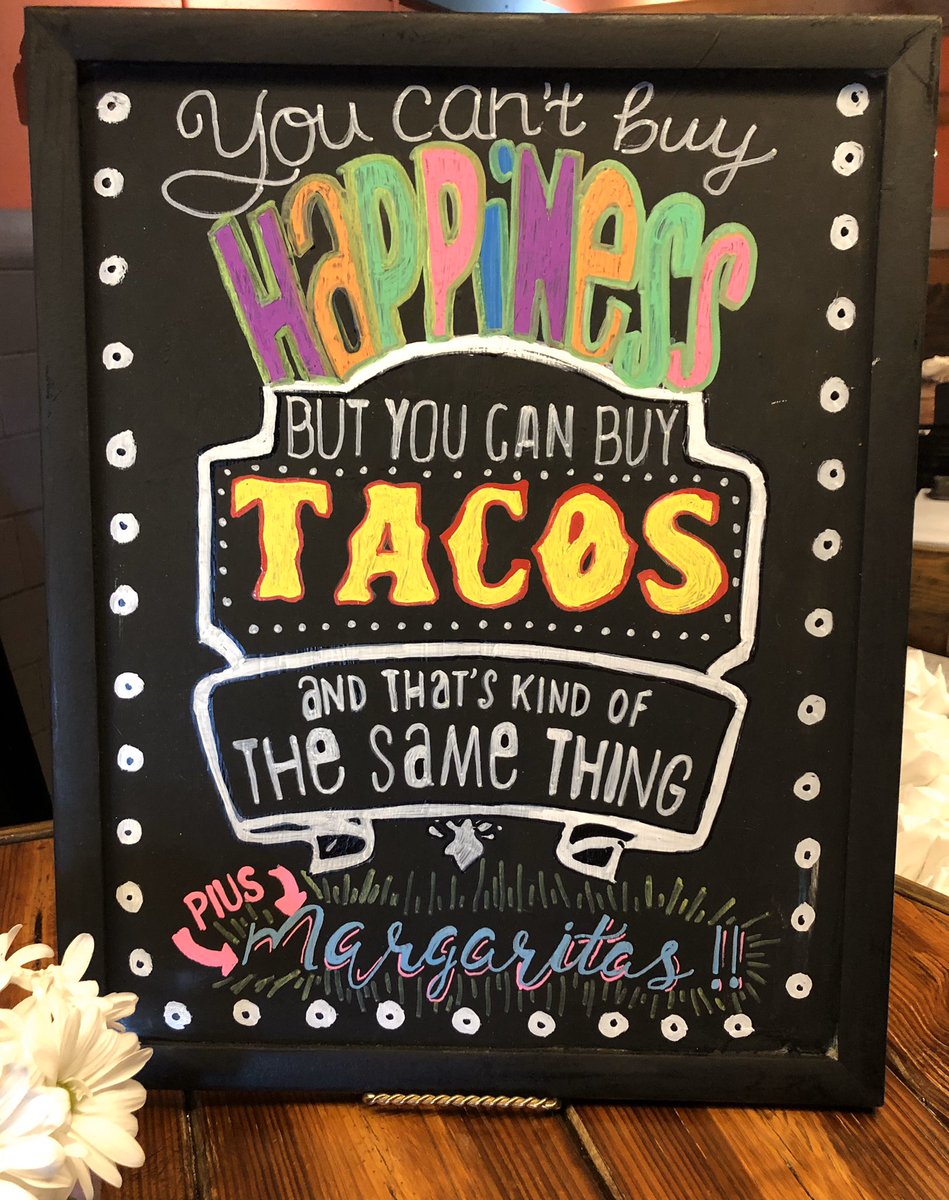 You can't buy
HaPPiNess
BUT YOU CAN BUY
TACOS
aND THaT'S KIND OF
THe SaMe THING
PlUS
Margaritas !!